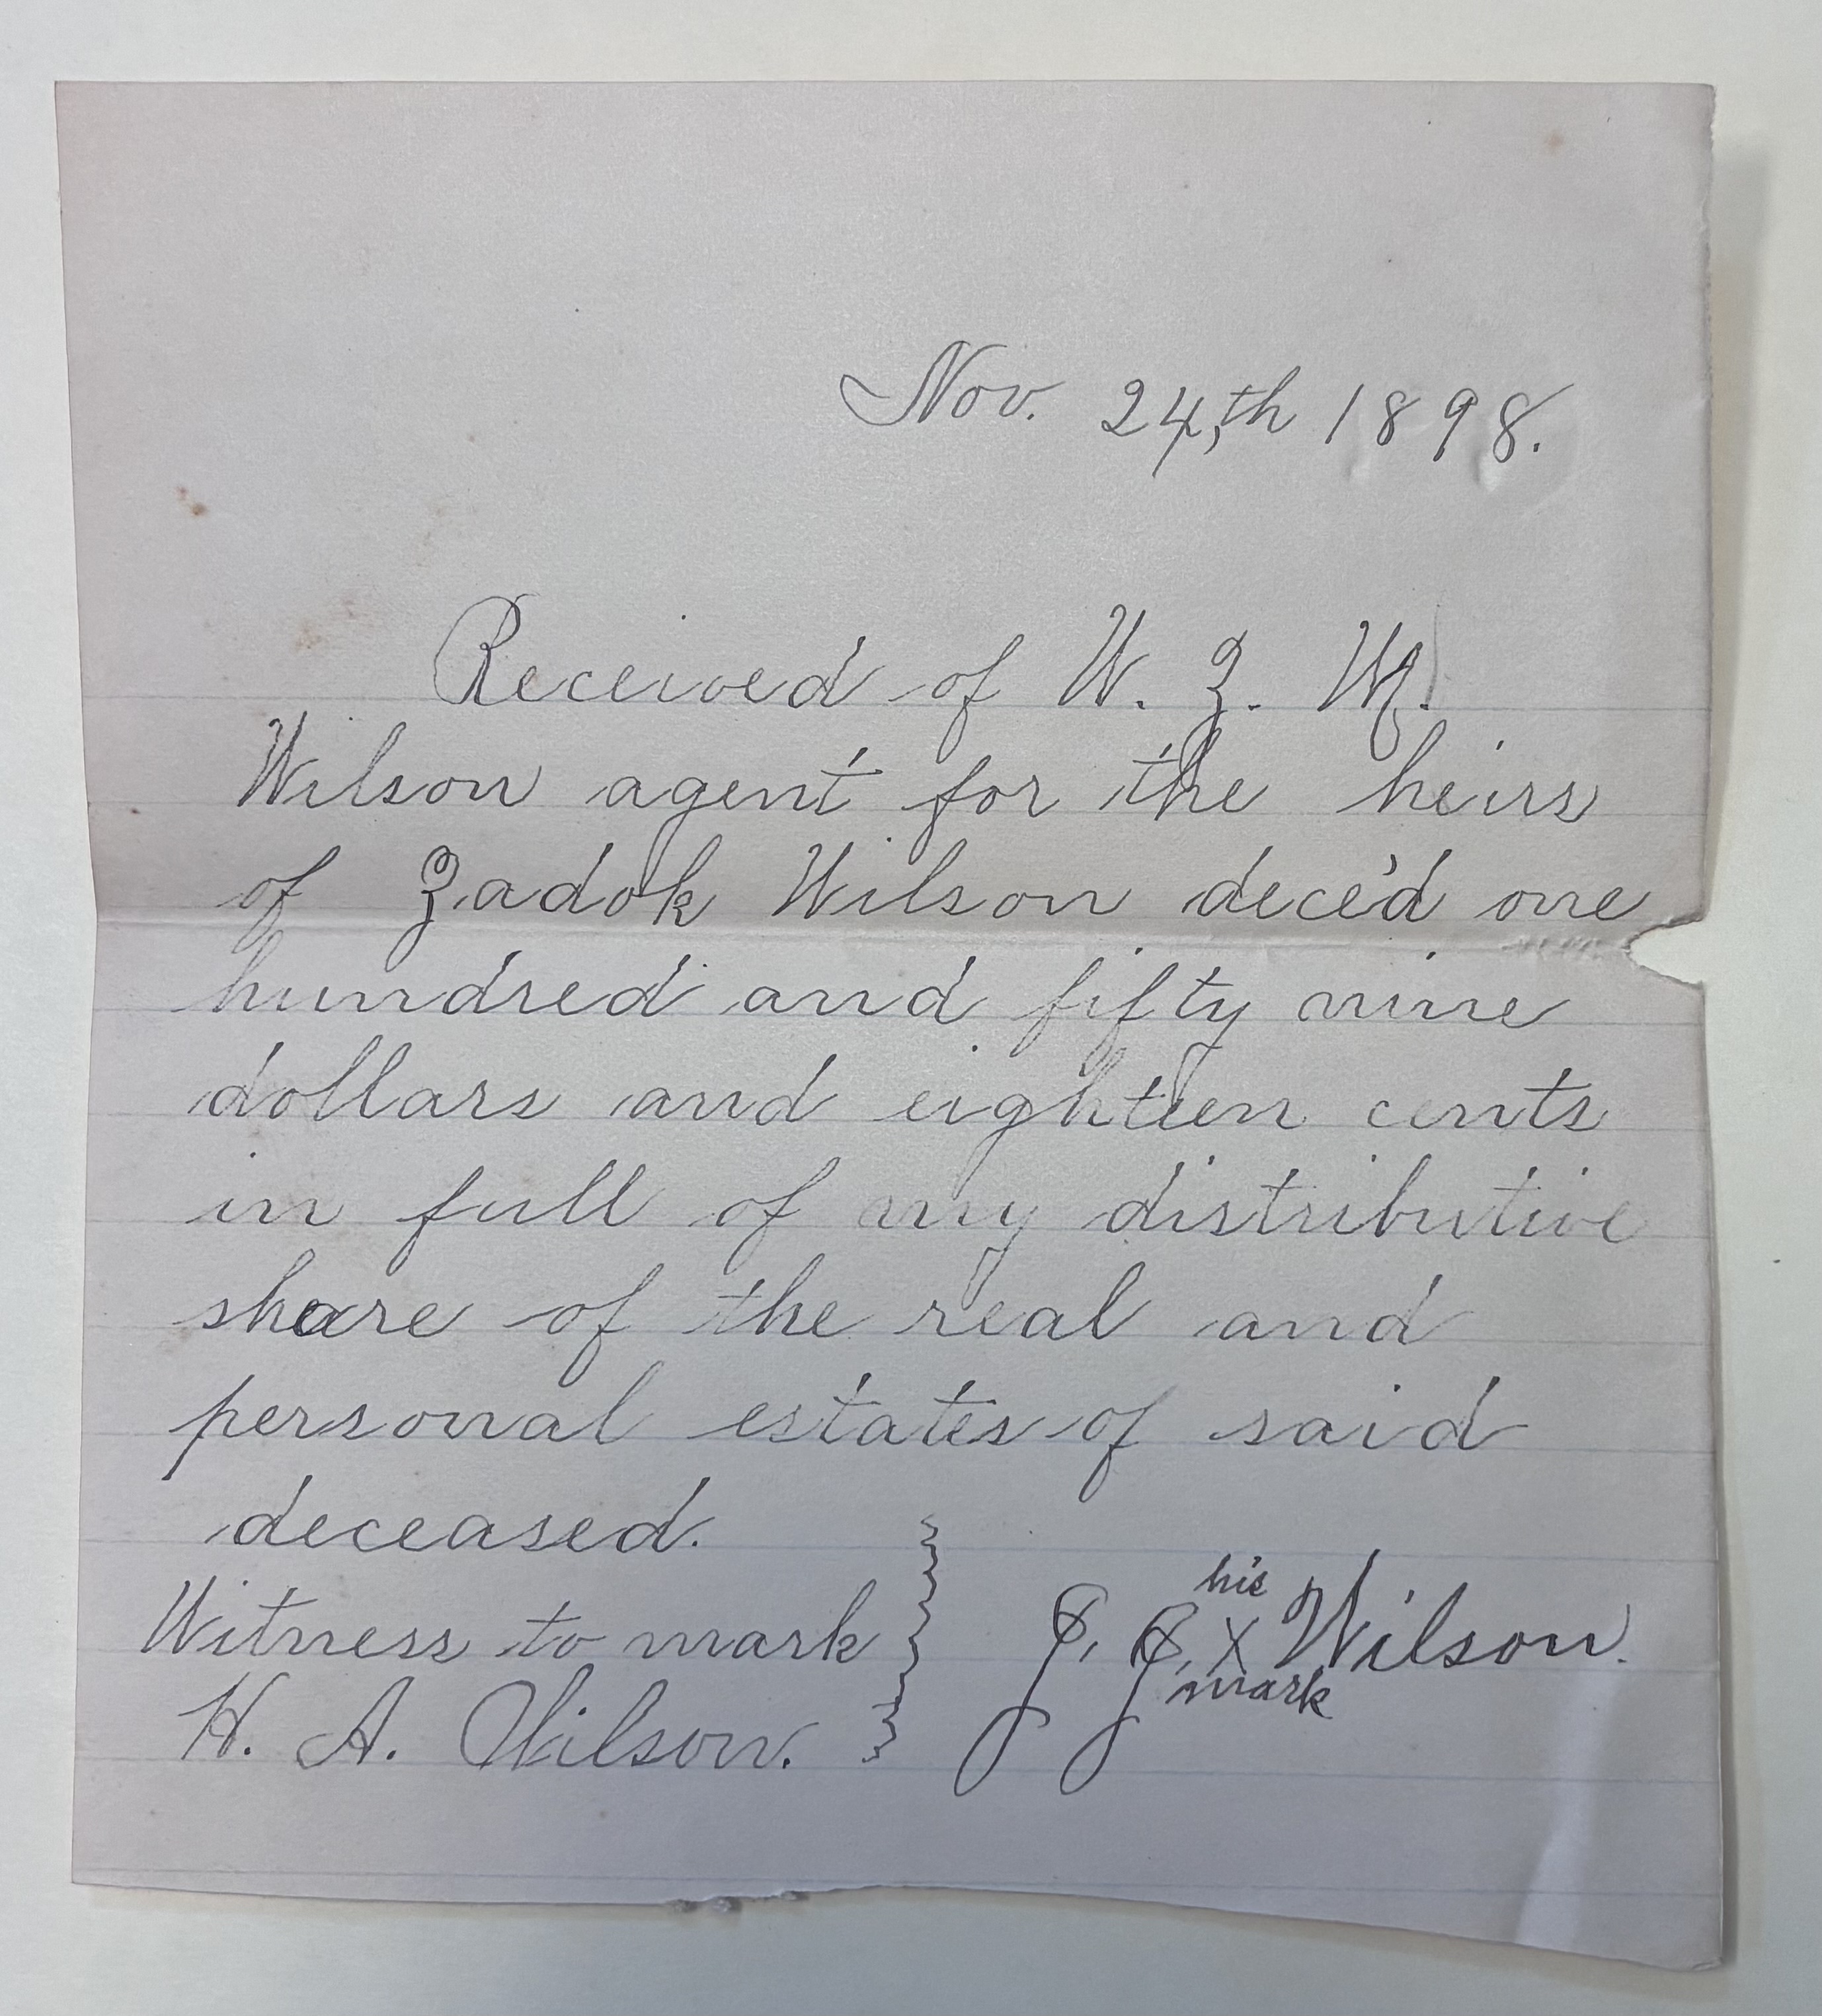 Nov. 24,th 1898.
Received of W. Z. M.
Wilson agent for the heirs
of Zadok Wilson dece'd one
hundred and fifty nine
dollars and eighteen cents
in full of any distributive
share of the real and
personal estates of said
deceased.
Witness to mark
H. A. Wilson.
his
J. J. X Wilson.
mark